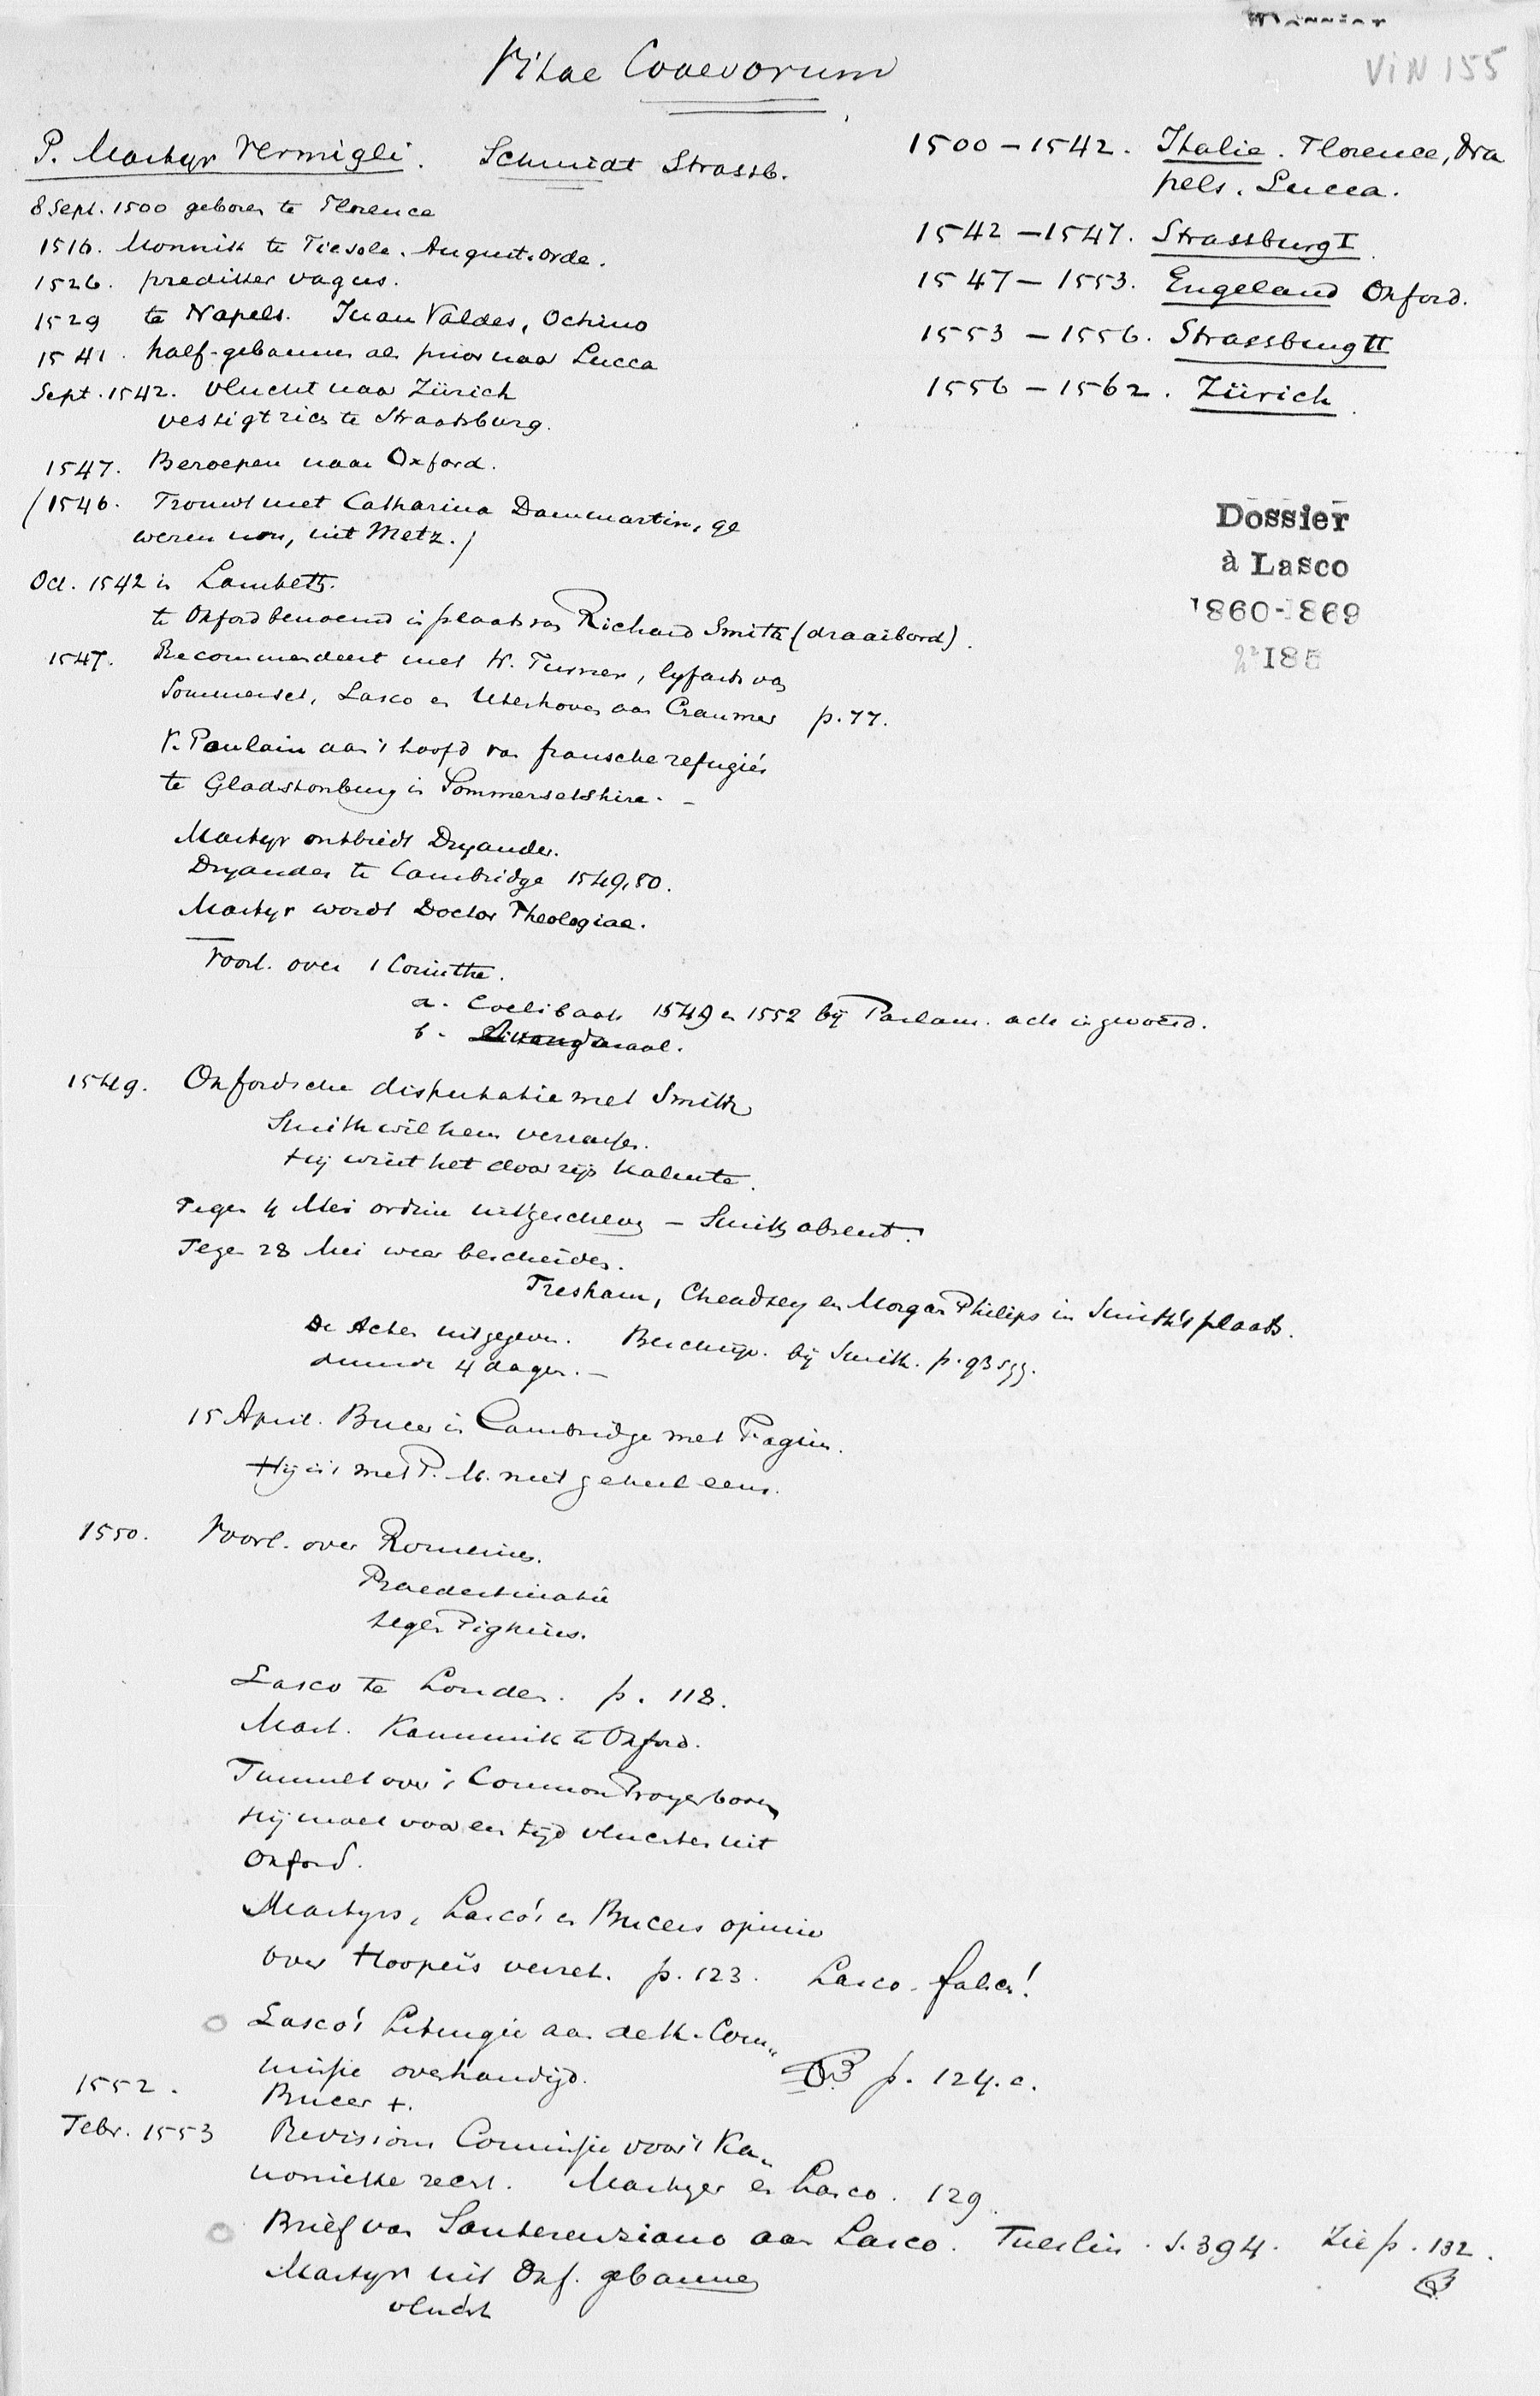 Vitae Coaevorum
ViN 155
P. Martyr Vermigli. Schmidt Strassb.
8 Sept. 1500 geboren te Florence
1516. Monnik te Fiesole. August. orde.
1526. predikker vagus.
1529 te Napels. Juan Valdes, Ochino
1541. half-gebannen als prior naar Lucca
Sept. 1542. vlucht naar Zürich
vestigt zich te Straatsburg.
1547. Beroepen naar Oxford.
(1546. Trouwt met Catharina Dammartin, ge
wezen non, uit Metz.)
Oct. 1542 in Lambeth.
te Oxford benoemd in plaats van Richard Smith (draaibord).
1547. Recommandeert met W. Turner, lyfarts van
Sommerset, Lasco en Utenhoven aan Cranmer p. 77.
V. Poulain aan 't hoofd van fransche refugiés
te Gladstonburg in Sommersetshire. –
Martyr ontbiedt Dryander.
Dryander te Cambridge 1549, 50.
Martyr wordt Doctor Theologiae.
Voorl. over 1 Corinthe.
a. Coelibaat 1549 en 1552 bij Parlam. acte ingevoerd.
b. Avondmaal.
1549. Oxfordsche disputatie met Smith
Smith wil hem verrassen.
Hij wint het door zijn kalmte.
Tegen 4 Mei ordine uitgeschreven – Smith absent.
Tegen 28 Mei weer bescheiden.
Tresham, Cheadsey en Morgan Philips in Smith's plaats.
De Acten uitgegeven. Beschrijv. bij Smith. p. 93 sqq.
duurde 4 dagen. –
15 April. Bucer in Cambridge met Fagius.
Hij is 't met P. M. niet geheel eens.
1550. Voorl. over Romeinen.
Praedestinatie
tegen Pighius.
Lasco te Londen. p. 118.
Mart. Kanunnik te Oxford.
Tumult over 't Common Prayerbook
Hij moet voor een tijd vluchten uit
Oxford.
Martyrs, Lasco's en Bucers opinie
over Hoopers verzet. p. 123. Lasco. falso!
Lasco's Liturgie aan de K. Com„
missie overhandigd. p. 124. c.
1552. Bucer +.
Febr. 1553 Revisions Commissie voor 't Ka„
nonieke recht. Martyr en Lasco. 129.
Brief van Santerenziano aan Lasco. Fueslin. S. 394. Zie p. 132.
Martyr uit Oxf. gebannen
vlucht
1500 – 1542. Italie. Florence, Na
pels. Lucca.
1542 – 1547. Strassburg I.
1547 – 1553. Engeland Oxford.
1553 – 1556. Strassburg II
1556 – 1562. Zürich.
Dossier
à Lasco
1860-1869
185